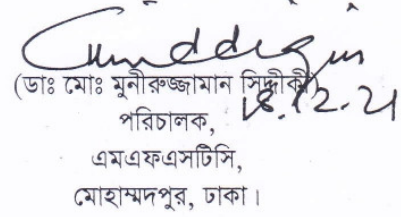 (ডাঃ মোঃ মুনীরুজ্জামান সিদ্দীকী)
18.12.21
পরিচালক,
এমএফএসটিসি,
মোহাম্মদপুর, ঢাকা।